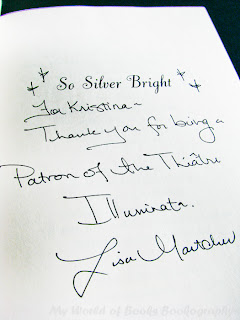 So Silver Bright
For Kristina~
Thank you for being a
Patron of the Théâtre
Illuminata.
Lisa Mantchev
My World of Books Bookography